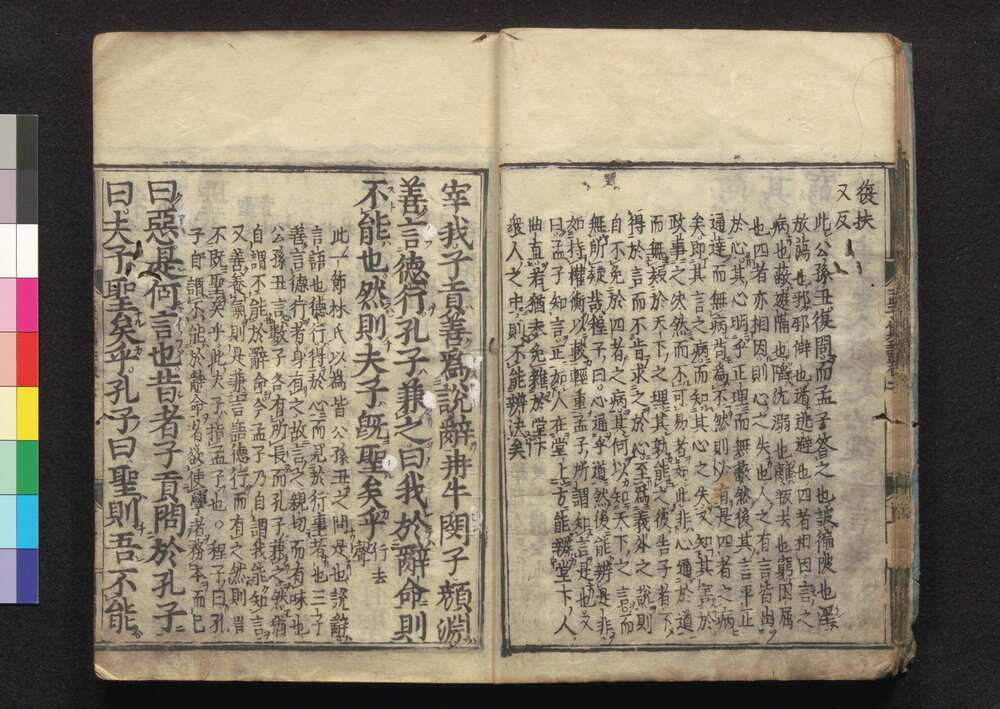 復扶
又反
此公孫丑復問而孟子答之也詖偏陂也淫
放蕩也邪邪僻也遁逃避也四者相因言之
病也蔽遮隔也陷沈溺也離叛去也窮困屈
也四者亦相因則心之失也人之有言皆出
於心其心明乎正理而無蔽然後其言平正
通達而無病苟爲不然則必有是四者之病
矣即其言之病而知其心之失又知其害於
政事之決然而不可易者如此非心通於道
而無疑於天下之理其孰能之彼告子者不
得於言而不肯求之於心至爲義外之說則
自不免於四者之病其何以知天下之言而
無所疑哉程子曰心通乎道然後能辨是非
如持權衡以較輕重孟子所謂知言是也又
曰孟子知言正如人在堂上方能辨堂下人
曲直若猶未免雜於堂下
衆人之中則不能辨決矣
宰我子貢善爲說辭冉牛閔子顏淵
善言德行孔子兼之曰我於辭命則
不能也然則夫子旣聖矣乎
行去
聲
此一節林氏以爲皆公孫丑之問是也說辭
言語也德行得於心而見於行事者也三子
善言德行者身有之故言之親切而有味也
公孫丑言數子各有所長而孔子兼之然猶
自謂不能於辭命今孟子乃自謂我能知言
又善養氣則是兼言語德行而有之然則豈
不旣聖矣乎此夫子指孟子也。程子曰孔
子自謂不能於辭命者欲使學者務本而已
曰惡是何言也昔者子貢問於孔子
曰夫子聖矣乎孔子曰聖則吾不能